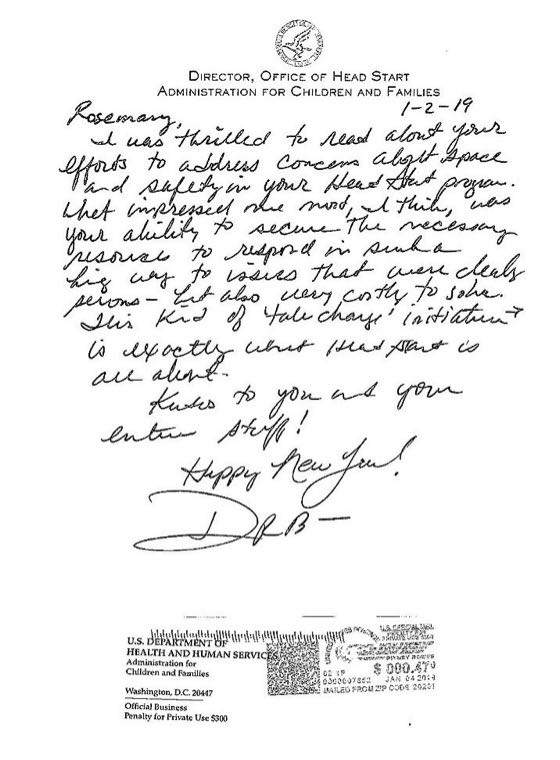 DIRECTOR, OFFICE OF HEAD START
ADMINISTRATION FOR CHILDREN AND FAMILIES
1-2-19
Rosemary,
I was thrilled to read about your
efforts to address concerns about space
and safety in your Head Start program.
What impressed me most, I think, was
your ability to secure the necessary
resources to respond in such a
big way to issues that were clearly
serious - but also very costly to solve.
This kind of 'take charge' initiative
is exactly what Head Start is
all about.
Kudos to you and your
entire staff!
Happy New Year!
DRB-
U.S. DEPARTMENT OF
HEALTH AND HUMAN SERVICES
Administration for
Children and Families
Washington, D.C. 20447
Official Business
Penalty for Private Use $300
U.S. OFFICIAL MAIL
PITNEY BOWES
02 1P $ 000.47⁰
JAN 04 2019
MAILED FROM ZIP CODE 20201